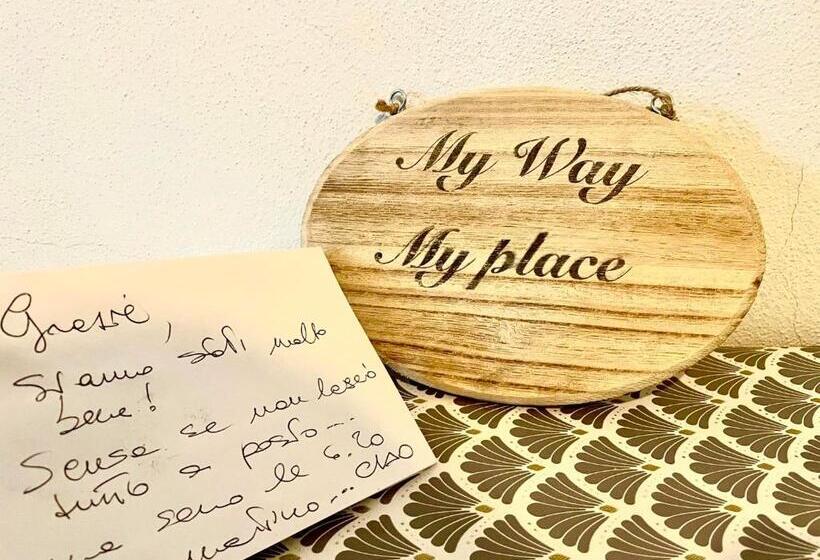 My Way
My place
Grazie,
siamo stati molto
bene!
Scusa se non lascio
tutto a posto...
ma sono le 6.20
mattino... ciao